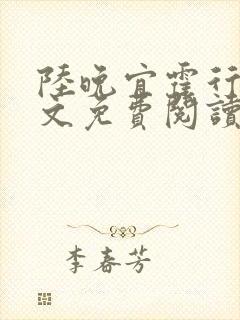 陸晚宜霆行
文免費閱讀
李春芳